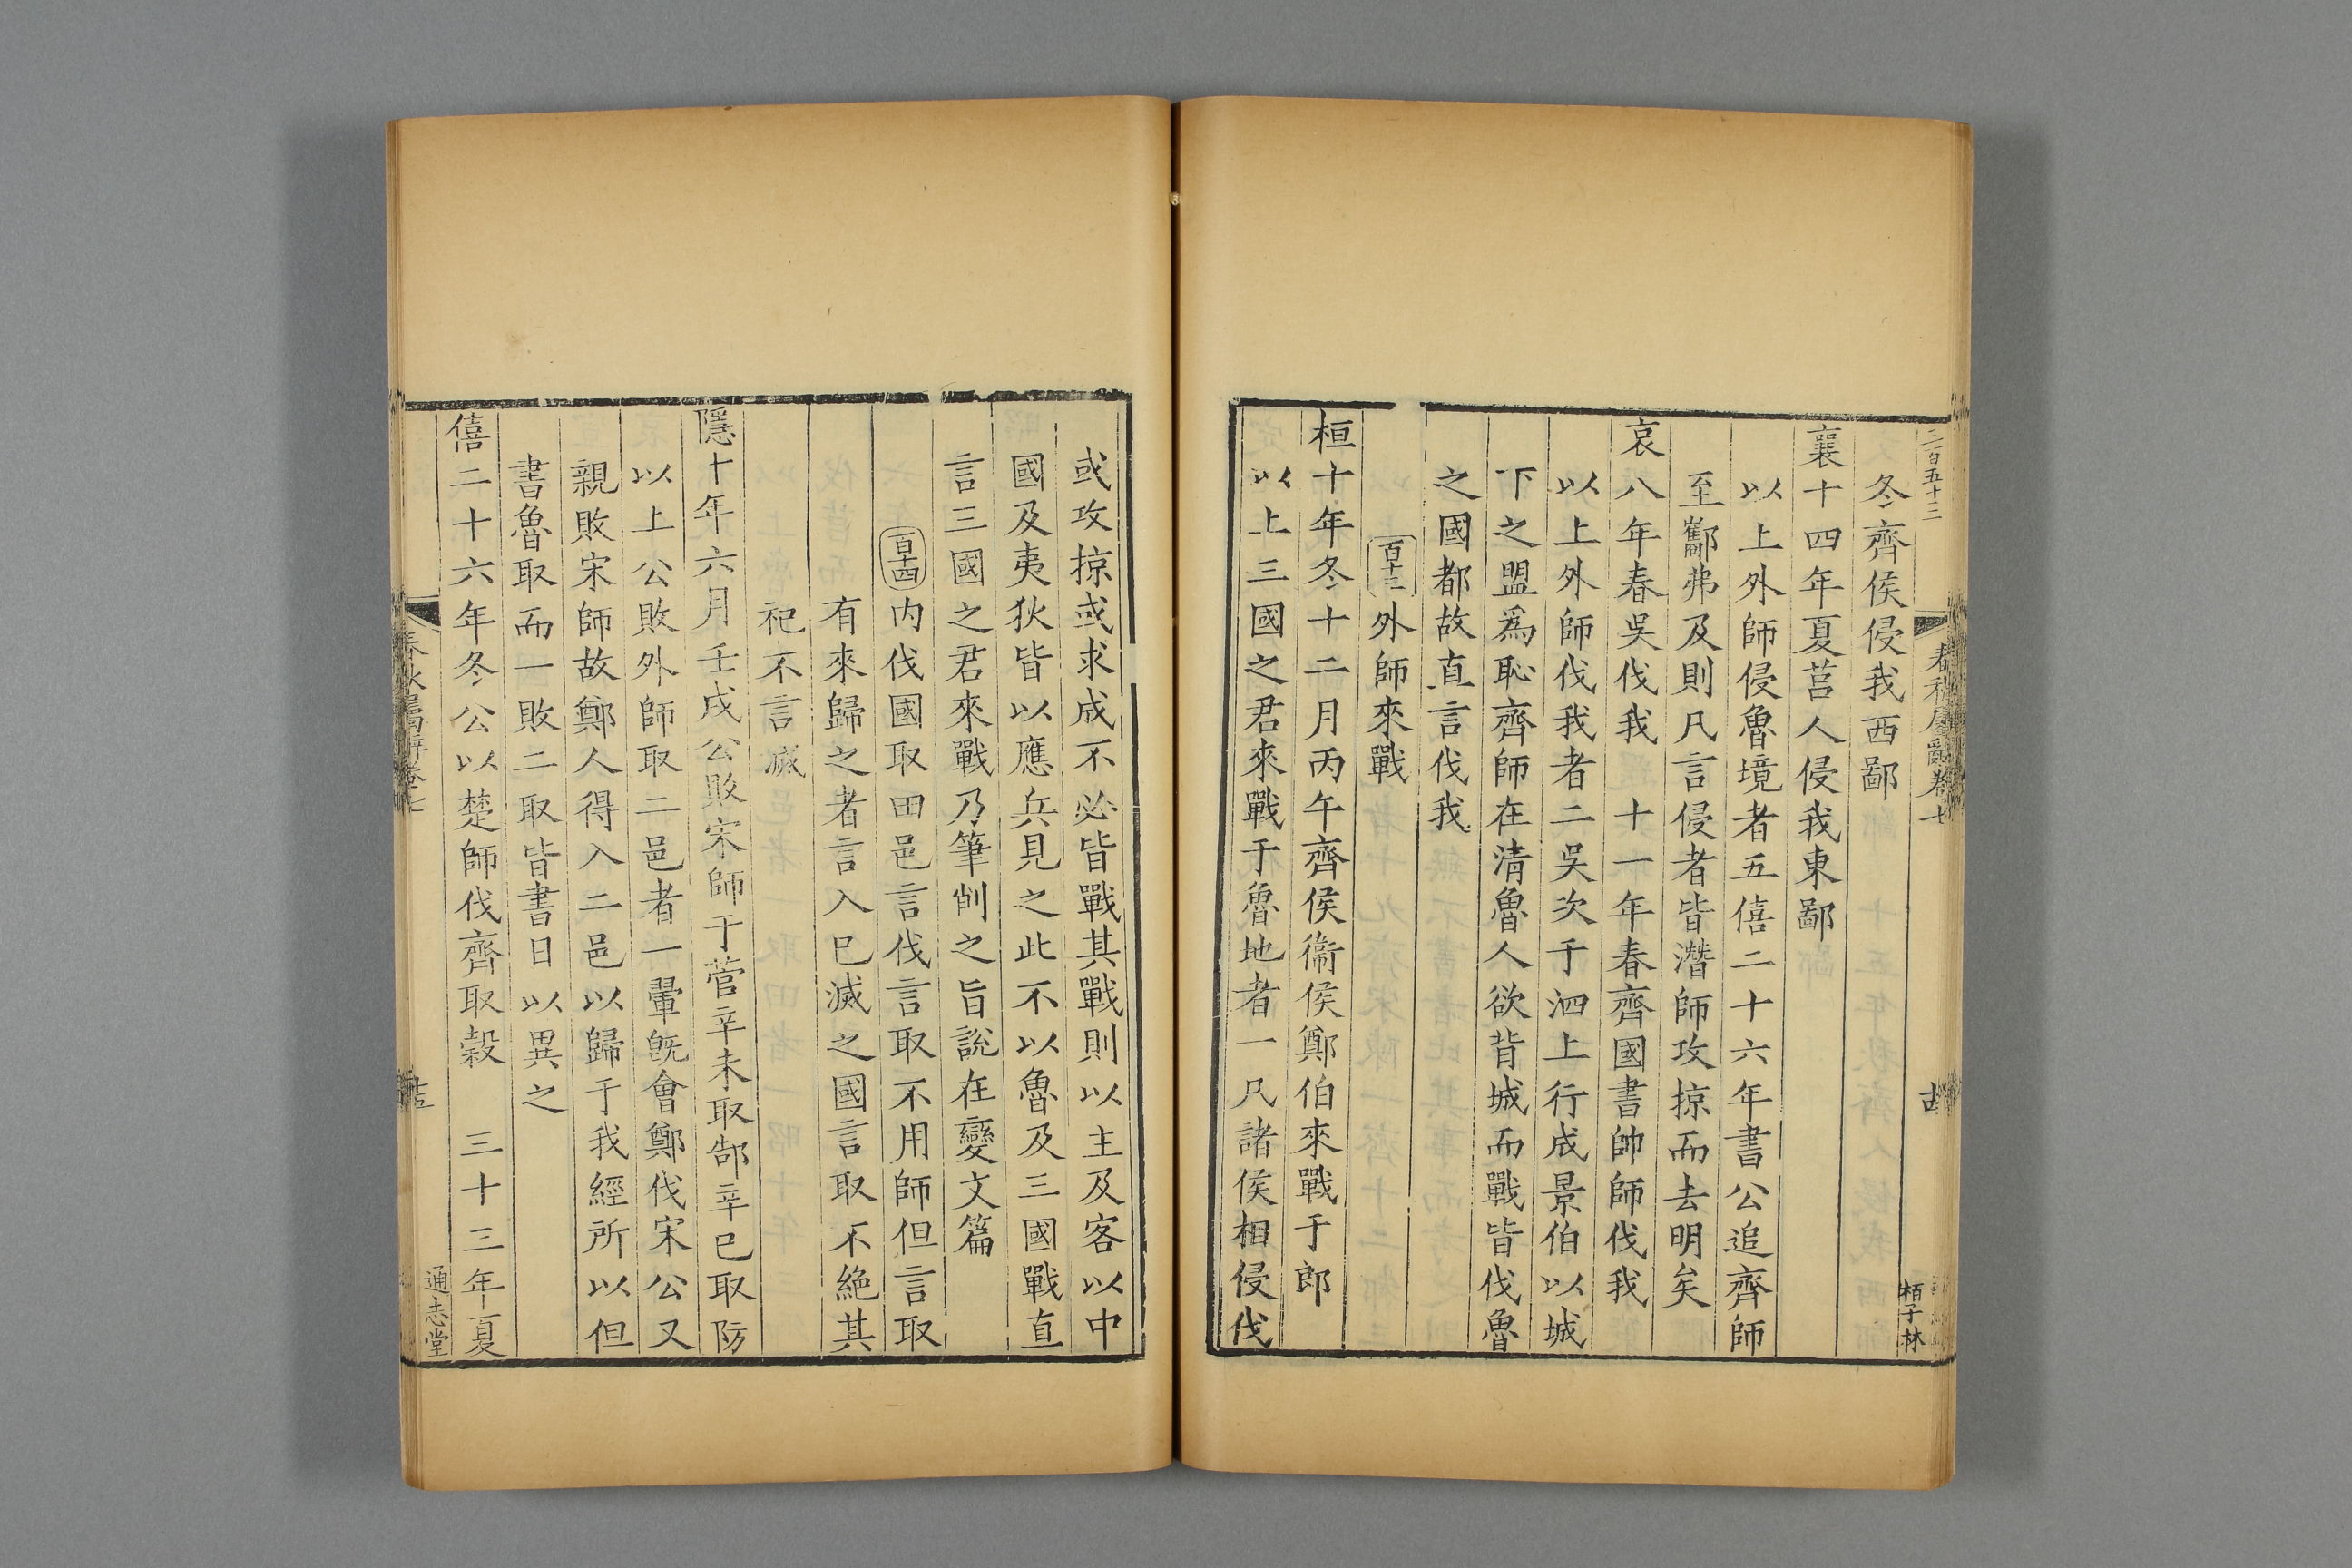 三百五十三
春秋屬辭卷七
古
栢子林
冬齊侯侵我西鄙
襄十四年夏莒人侵我東鄙
以上外師侵魯境者五僖二十六年書公追齊師
至酅弗及則凡言侵者皆潛師攻掠而去明矣
哀八年春吳伐我　十一年春齊國書帥師伐我
以上外師伐我者二吳次于泗上行成景伯以城
下之盟爲恥齊師在清魯人欲背城而戰皆伐魯
之國都故直言伐我
百十三外師來戰
桓十年冬十二月丙午齊侯衞侯鄭伯來戰于郎
以上三國之君來戰于魯地者一凡諸侯相侵伐
或攻掠或求成不必皆戰其戰則以主及客以中
國及夷狄皆以應兵見之此不以魯及三國戰直
言三國之君來戰乃筆削之旨說在變文篇
百十四内伐國取田邑言伐言取不用師但言取
有來歸之者言入已滅之國言取不絶其
祀不言滅
隱十年六月壬戌公敗宋師于菅辛未取郜辛巳取防
以上公敗外師取二邑者一翬旣會鄭伐宋公又
親敗宋師故鄭人得入二邑以歸于我經所以但
書魯取而一敗二取皆書日以異之
僖二十六年冬公以楚師伐齊取穀　三十三年夏
春秋屬辭卷七
通志堂